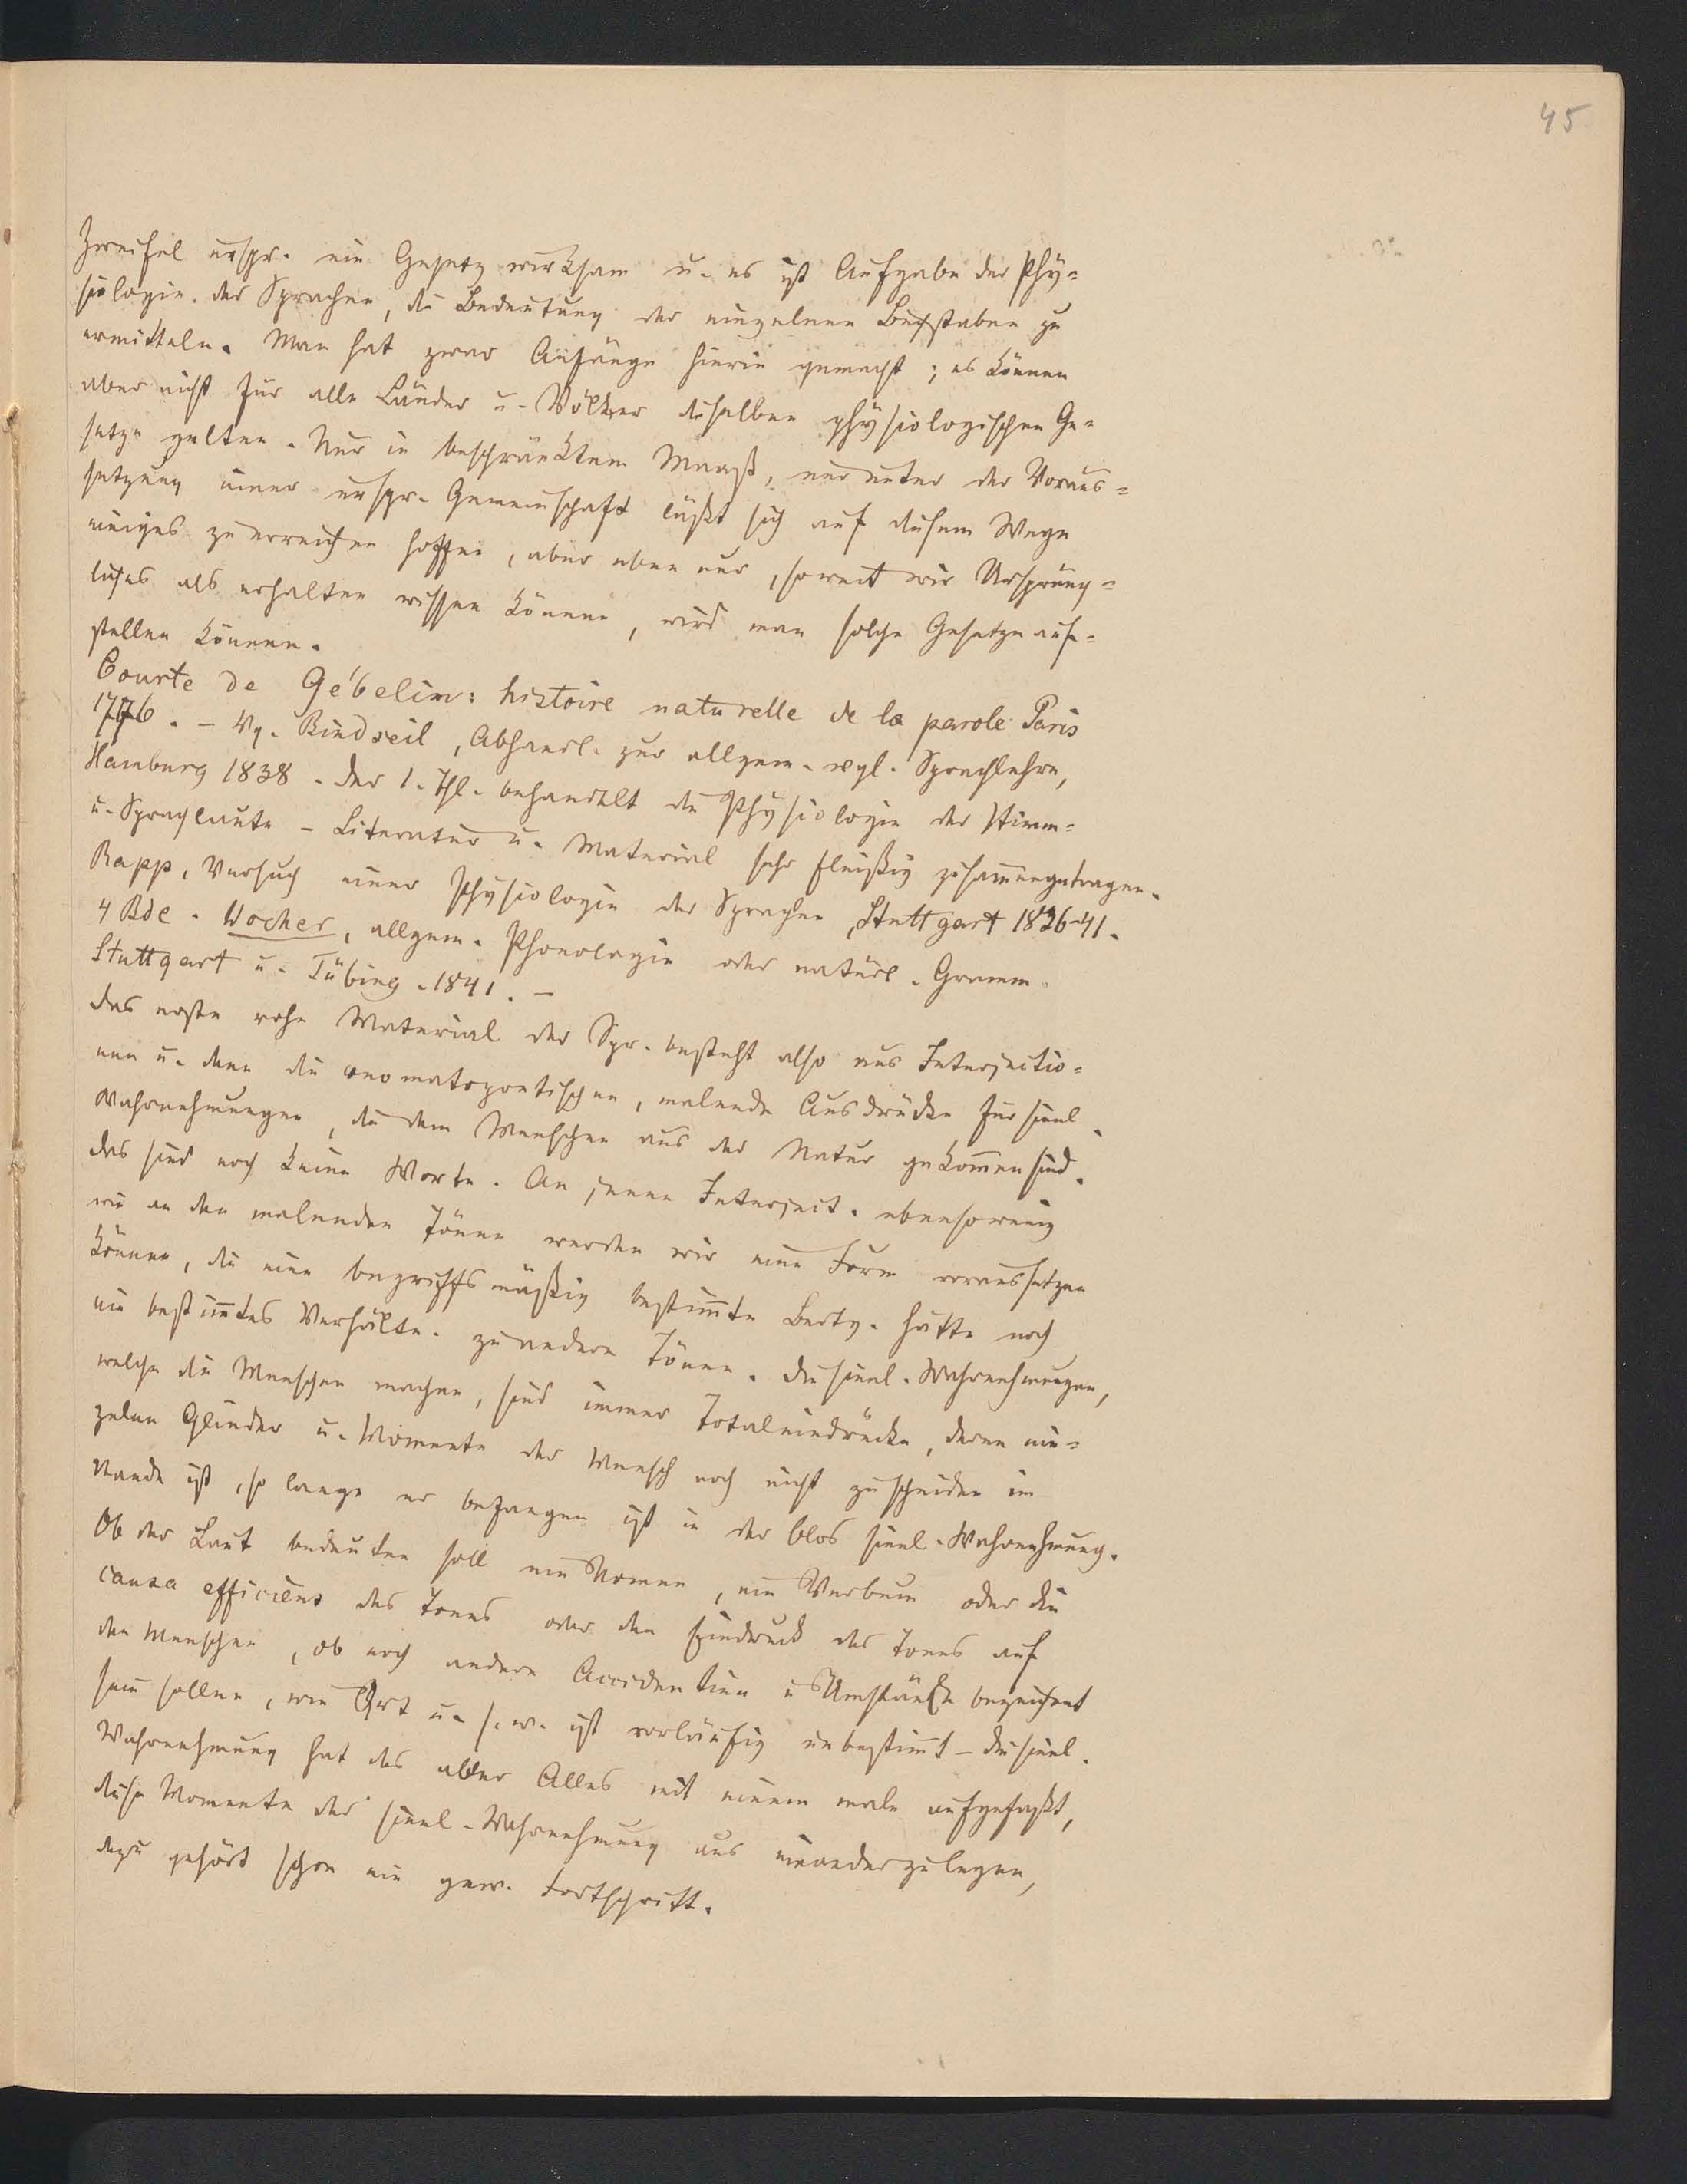 45
Zweifel urspr. ein Gesetz wirksam u. es ist Aufgabe der Phy-
siologie der Sprachen, die Bedeutung der einzelnen Buchstaben zu
ermitteln. Man hat zwar Anfänge hierin gemacht; es können
aber nicht für alle Länder u. Völker dieselben physiologischen Ge-
setze gelten. Nur in beschränktem Maaß, nur unter der Voraus-
setzung einer urspr. Gemeinschaft läßt sich auf diesem Wege
einiges zu erreichen hoffen, aber eben nur, soweit wir Ursprüng-
liches als erhalten wissen können, wird man solche Gesetze auf-
stellen können.
Courte de Gébelin: histoire naturelle de la parole Paris
1776. – Vg. Bindseil, Abhandl. zur allgem. vgl. Sprachlehre,
Hamburg 1838. der 1. Thl. behandelt die Physiologie der Stimm-
u. Sprachlaute – Literatur u. Material sehr fleißig zusam̄engetragen.
Rapp, Versuch einer Physiologie der Sprachen, Stuttgart 1836-41.
4 Bde. Wocher, allgem. Phonologie oder natürl. Gramm.
Stuttgart u. Tübing. 1841. –
Das erste rohe Material der Spr. besteht also aus Interjectio-
nen u. den die onomatopoetischen, malende Ausdrücke für sinnl.
Wahrnehmungen, die dem Menschen aus der Natur gekom̄en sind.
das sind noch keine Worte. An jenen Interject. ebensowenig
wie an den malenden Tönen werden wir eine Form voraussetzen
können, die eine begriffsmäßig bestim̄te Bedtg. hätte noch
ein bestim̄tes Verhältn. zu andern Tönen. Die sinnl. Wahrnehmungen,
welche die Menschen machen, sind immer Totaleindrücke, deren ein-
zelne Glieder u. Momente der Mensch noch nicht zu scheiden im
Stande ist, so lange er befangen ist in der blos sinnl. Wahrnehmung.
Ob der Laut bedeuten soll ein Nomen, ein Verbum oder die
causa efficiens des Tones oder den Eindruck des Tones auf
den Menschen, ob noch andere Accidentien u Umstände bezeichnet
sein sollen, wie Ort u. s. w. ist vorläufig unbestim̄t – die sinnl.
Wahrnehmung hat das aber Alles mit einem male aufgefaßt,
diese Momente der sinnl. Wahrnehmung aus einanderzulegen,
dazu gehört schon ein gew. Fortschritt.